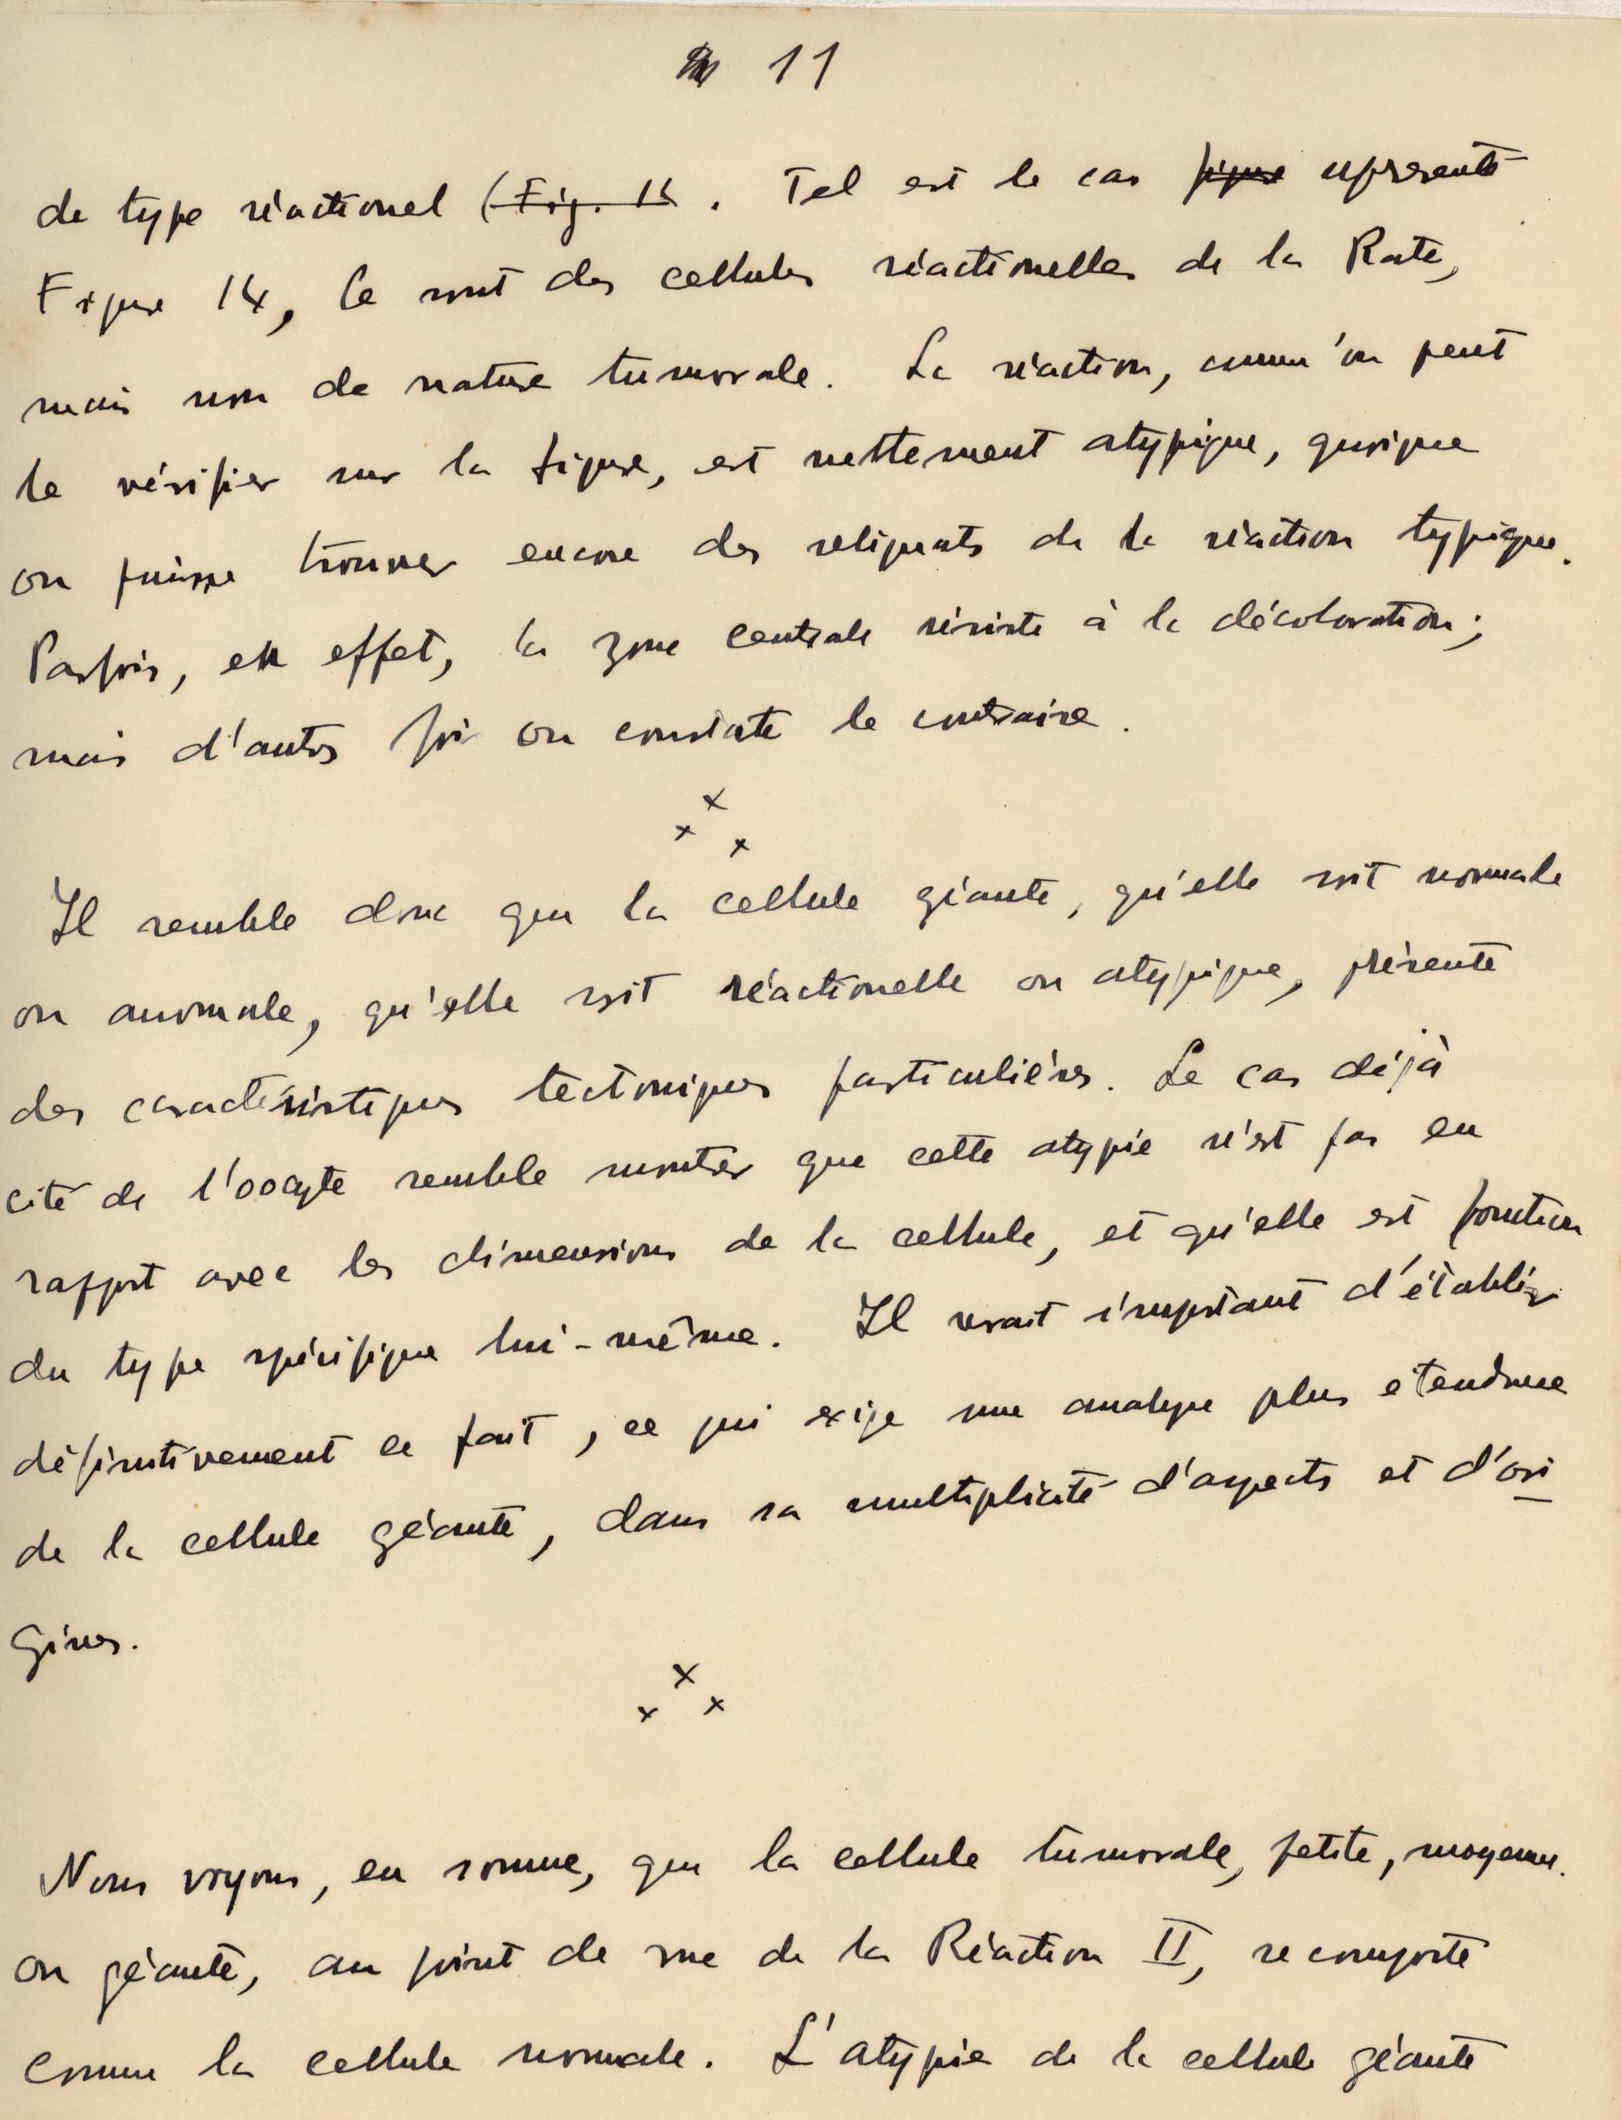 11
de type réactionel (Fig. 14. Tel est le cas figure représenté
Figure 14, Ce sont des cellules réactionelles de la Rate,
mais non de nature tumorale. La réaction, comm'on peut
le vérifier sur la figure, est nettement atypique, quoique
on puisse trouver encore des reliquats de la réaction typique.
Parfois, en effet, la zone centrale résiste à la décoloration;
mais d'autres fois on constate le contraire.
x x x
Il semble donc que la cellule géante, qu'elle soit normale
ou anomale, qu'elle soit réactionelle ou atypique, présente
des caractéristiques tectoniques particulières. Le cas déjà
cité de l'oocyte semble montrer que cette atypie n'est pas en
rapport avec les dimensions de la cellule, et qu'elle est fonction
du type spécifique lui-même. Il serait important d'établir
définitivement ce fait, ce qui exige une analyse plus etendue
de la cellule géante, dans sa multiplicité d'aspects et d'ori
gines.
x x x
Nous voyons, en somme, que la cellule tumorale, petite, moyenne
ou géante, au point de vue de la Réaction II, se comporte
comme la cellule normale. L'atypie de la cellule géante